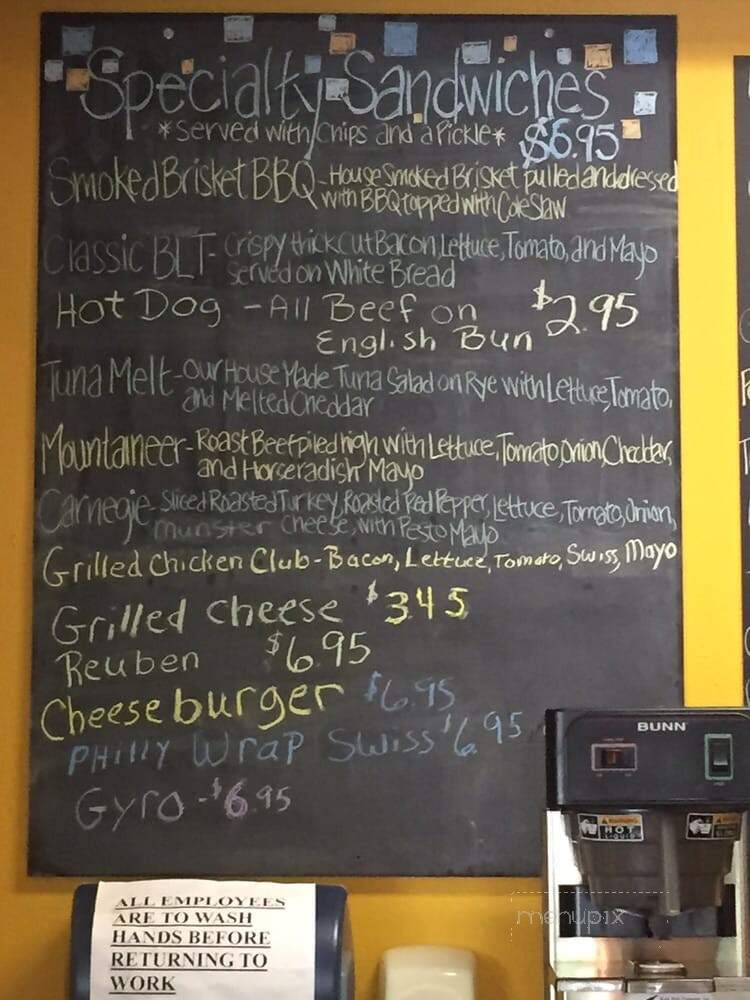 Specialty Sandwiches
*Served with Chips and a Pickle* $6.95
Smoked Brisket BBQ - House Smoked Brisket pulled and dressed
with BBQ topped with Cole Slaw
Classic BLT - Crispy thick cut Bacon, Lettuce, Tomato, and Mayo
Served on White Bread
Hot Dog - All Beef on $2.95
English Bun
Tuna Melt - Our House Made Tuna Salad on Rye with Lettuce, Tomato,
and Melted Cheddar
Mountaineer - Roast Beef piled high with Lettuce, Tomato, Onion, Cheddar,
and Horseradish Mayo
Carnegie - Sliced Roasted Turkey, Roasted Red Pepper, Lettuce, Tomato, Onion,
munster Cheese, with Pesto Mayo
Grilled Chicken Club - Bacon, Lettuce, Tomato, Swiss, Mayo
Grilled Cheese $3.45
Reuben $6.95
Cheeseburger $6.95
PHilly Wrap Swiss $6.95
Gyro - $6.95
BUNN
HOT
ALL EMPLOYEES
ARE TO WASH
HANDS BEFORE
RETURNING TO
WORK
menupix